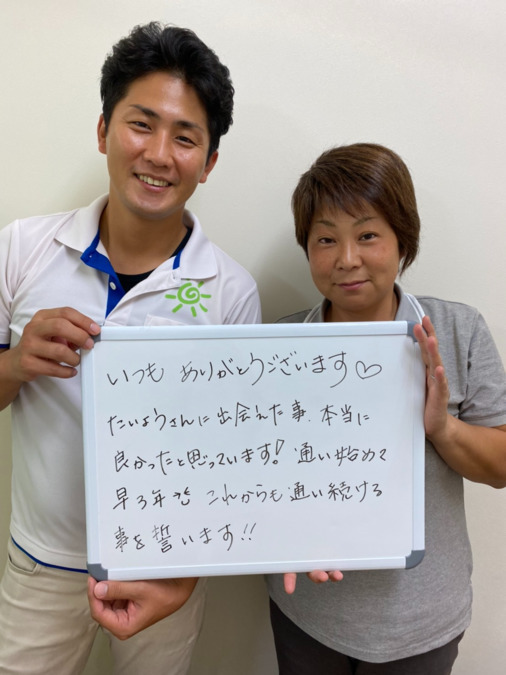 いつも ありがとうございます♡
たいようさんに出会えた事、本当に
良かったと思っています! 通い始めて
早3年 これからも通い続ける
事を誓います!!